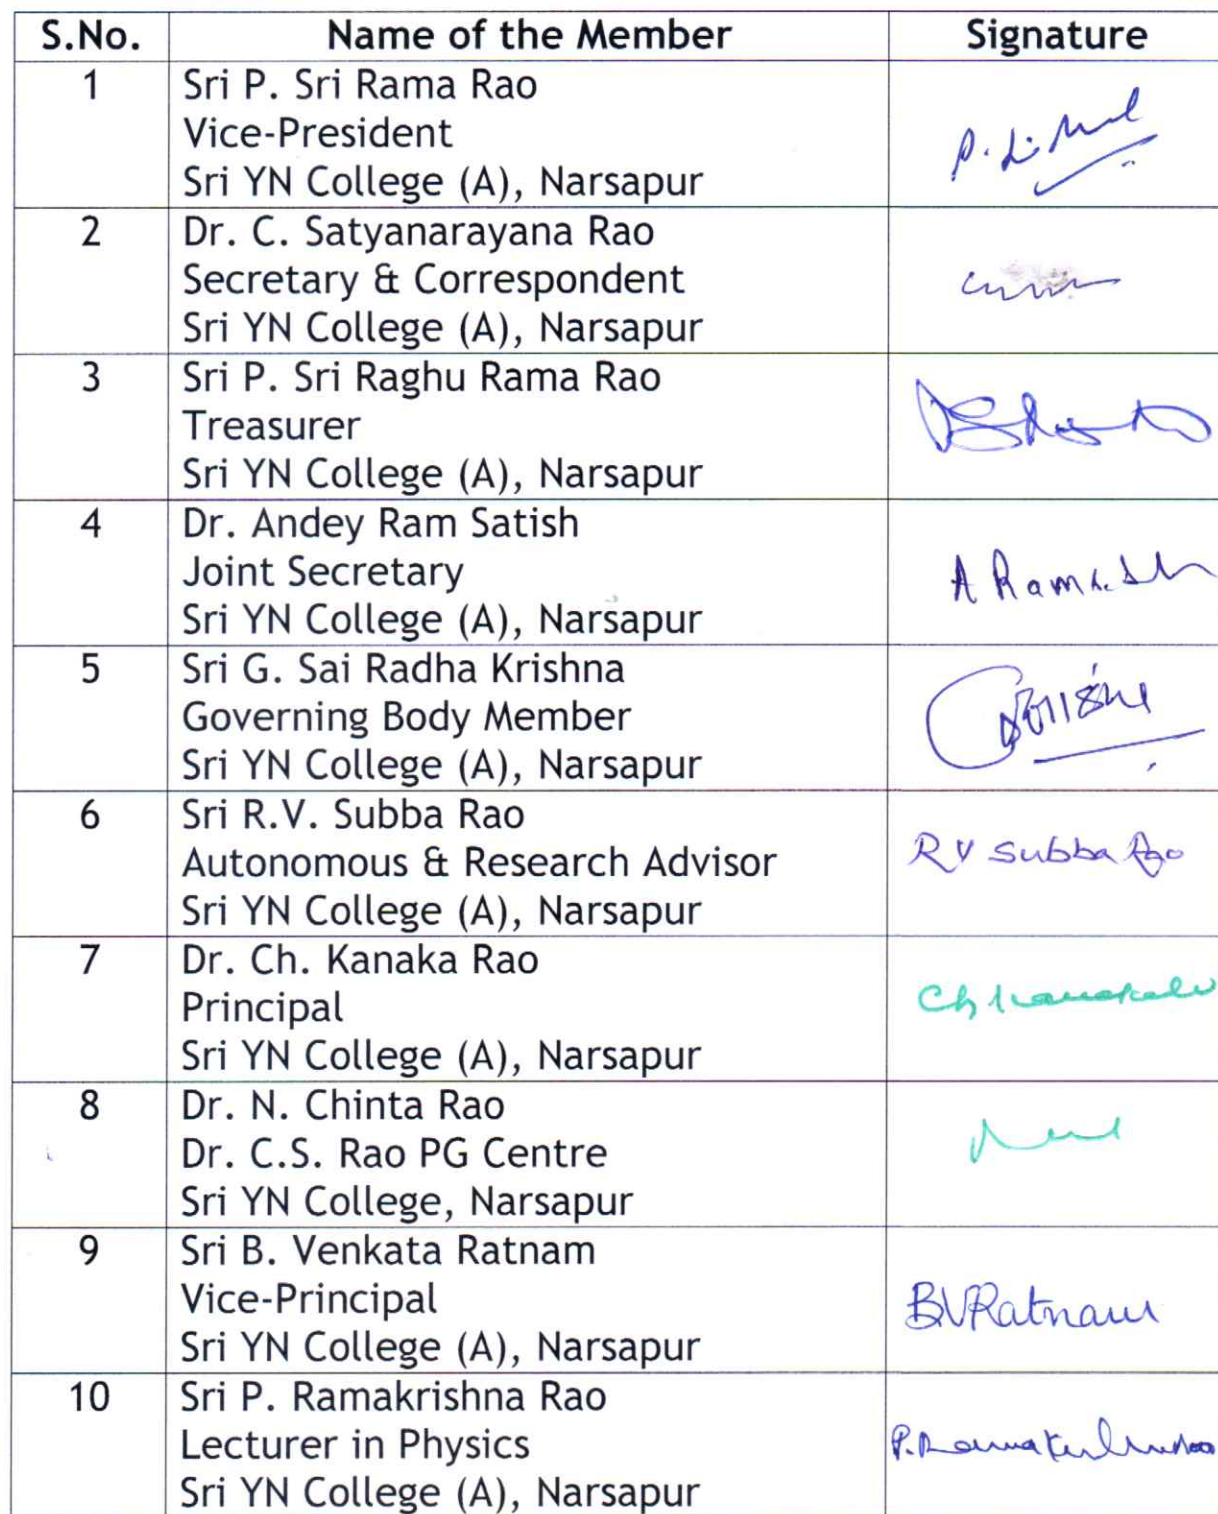 S.No. Name of the Member Signature
1 Sri P. Sri Rama Rao
Vice-President
Sri YN College (A), Narsapur
2 Dr. C. Satyanarayana Rao
Secretary & Correspondent
Sri YN College (A), Narsapur
3 Sri P. Sri Raghu Rama Rao
Treasurer
Sri YN College (A), Narsapur
4 Dr. Andey Ram Satish
Joint Secretary
Sri YN College (A), Narsapur
5 Sri G. Sai Radha Krishna
Governing Body Member
Sri YN College (A), Narsapur
6 Sri R.V. Subba Rao
Autonomous & Research Advisor R V Subba Rao
Sri YN College (A), Narsapur
7 Dr. Ch. Kanaka Rao
Principal
Sri YN College (A), Narsapur
8 Dr. N. Chinta Rao
Dr. C.S. Rao PG Centre
Sri YN College, Narsapur
9 Sri B. Venkata Ratnam
Vice-Principal BVRatnam
Sri YN College (A), Narsapur
10 Sri P. Ramakrishna Rao
Lecturer in Physics
Sri YN College (A), Narsapur